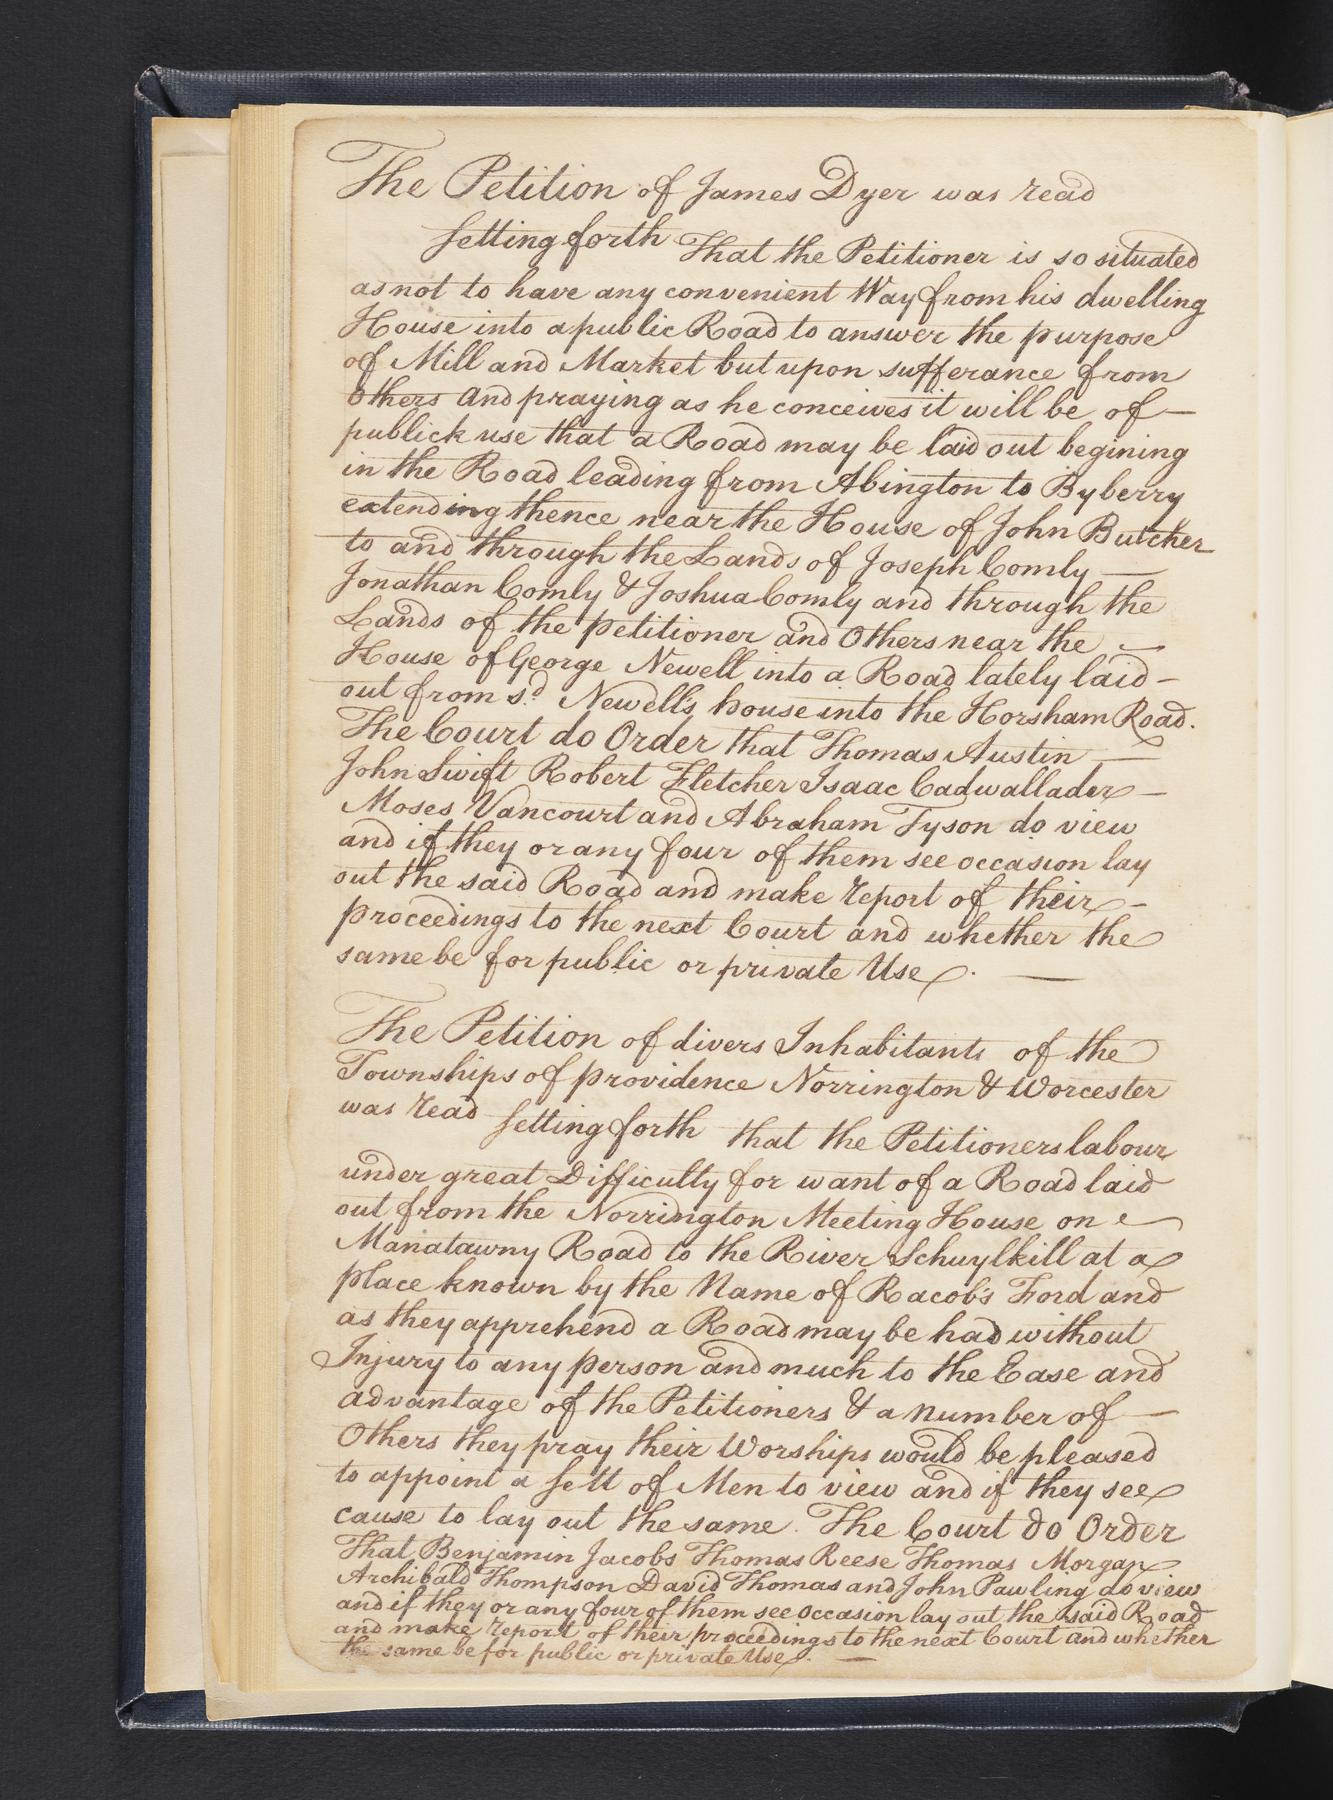 The Petition of James Dyer was read
Setting forth That the Petitioner is so situated
as not to have any convenient Way from his dwelling
House into a public Road to answer the purpose
of Mill and Market but upon sufferance from
Others and praying as he conceives it will be of —
publick use that a Road may be laid out begining
in the Road leading from Abington to Byberry
extending thence near the House of John Butcher
to and through the Lands of Joseph Comly —
Jonathan Comly & Joshua Comly and through the
Lands of the petitioner and Others near the —
House of George Newell into a Road lately laid –
out from sd. Newell's house into the Horsham Road.
The Court do Order that Thomas Austin —
John Swift Robert Fletcher Isaac Cadwallader –
Moses Vancourt and Abraham Tyson do view
and if they or any four of them see occasion lay
out the said Road and make report of their –
proceedings to the next Court and whether the
same be for public or private Use. —
The Petition of divers Inhabitants of the
Townships of providence Norrington & Worcester
was read Setting forth that the Petitioners labour
under great Difficulty for want of a Road laid
out from the Norrington Meeting House on
Manatawny Road to the River Schuylkill at a
place known by the Name of Racob's Ford and
as they apprehend a Road may be had without
Injury to any person and much to the Ease and
advantage of the Petitioners & a number of —
Others they pray their Worships would be pleased
to appoint a Sett of Men to view and if they see
cause to lay out the same. The Court do Order
That Benjamin Jacobs Thomas Reese Thomas Morgan
Archibald Thompson David Thomas and John Pawling do view
and if they or any four of them see occasion lay out the said Road
and make report of their proceedings to the next Court and whether
the same be for public or private Use. —